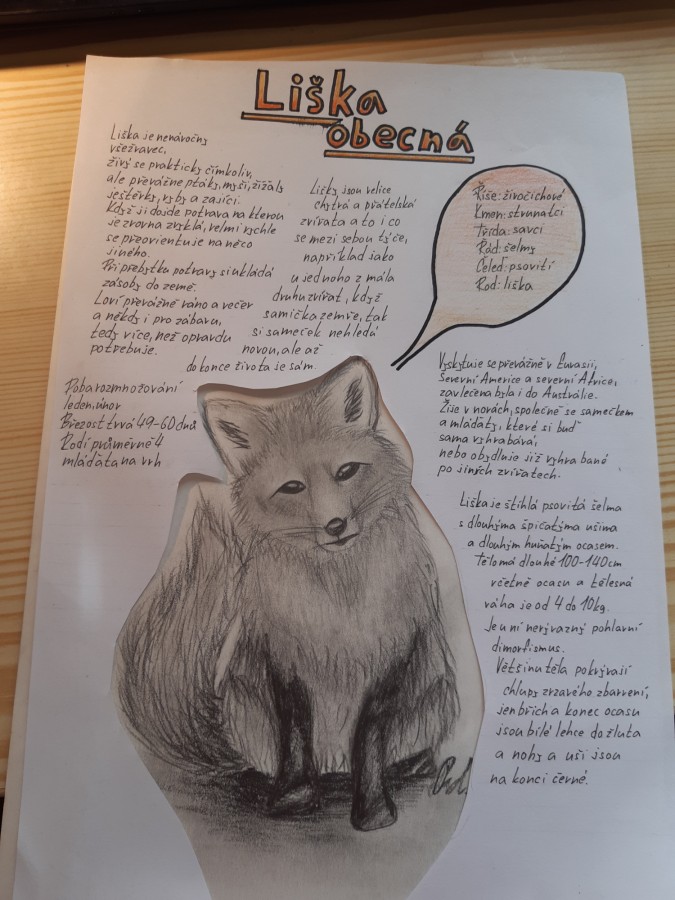 Liška
obecná
Liška je nenáročný
všežravec,
živý se prakticky čímkoliv,
ale převážne ptáky, myši, žížaly
ještěrky, ryby a zajíci.
Když ji dojde potrava na kterou
je zrovna zvyklá, velmi rychle
se přeorientuje na něco
jiného.
Při přebytku potravy si ukládá
zásoby do země.
Loví převážně ráno a večer
a někdy i pro zábavu,
tedy více, než opravdu
potřebuje.
Lišky jsou velice
chytrá a přátelská
zvířata a to i co
se mezi sebou týče,
například jako
u jednoho z mála
druhu zvířat, když
samička zemře, tak
si sameček nehledá
novou, ale až
do konce života je sám.
Říše: živočichové
Kmen: strunatci
Třída: savci
Řád: šelmy
Čeleď: psovití
Rod: liška
Doba rozmnožování
leden, únor
Březost trvá 49-60 dnů
Rodí průměrně 4
mláďata na vrh
Vyskytuje se převážně v Eurasii,
Severní Americe a severní Africe,
zavlečena byla i do Austrálie.
Žije v norách, společně se samečkem
a mláďaty, které si buď
sama vyhrabává,
nebo obydluje již vyhrabané
po jiných zvířatech.
Liška je štíhlá psovitá šelma
s dlouhýma špičatýma ušima
a dlouhým huňatým ocasem.
Tělo má dlouhé 100-140cm
včetně ocasu a tělesná
váha je od 4 do 10kg.
Je u ní nevýrazný pohlavní
dimorfismus.
Většinu těla pokrývají
chlupy zrzavého zbarvení,
jen břich a konec ocasu
jsou bílé lehce do žluta
a nohy a uši jsou
na konci černé.